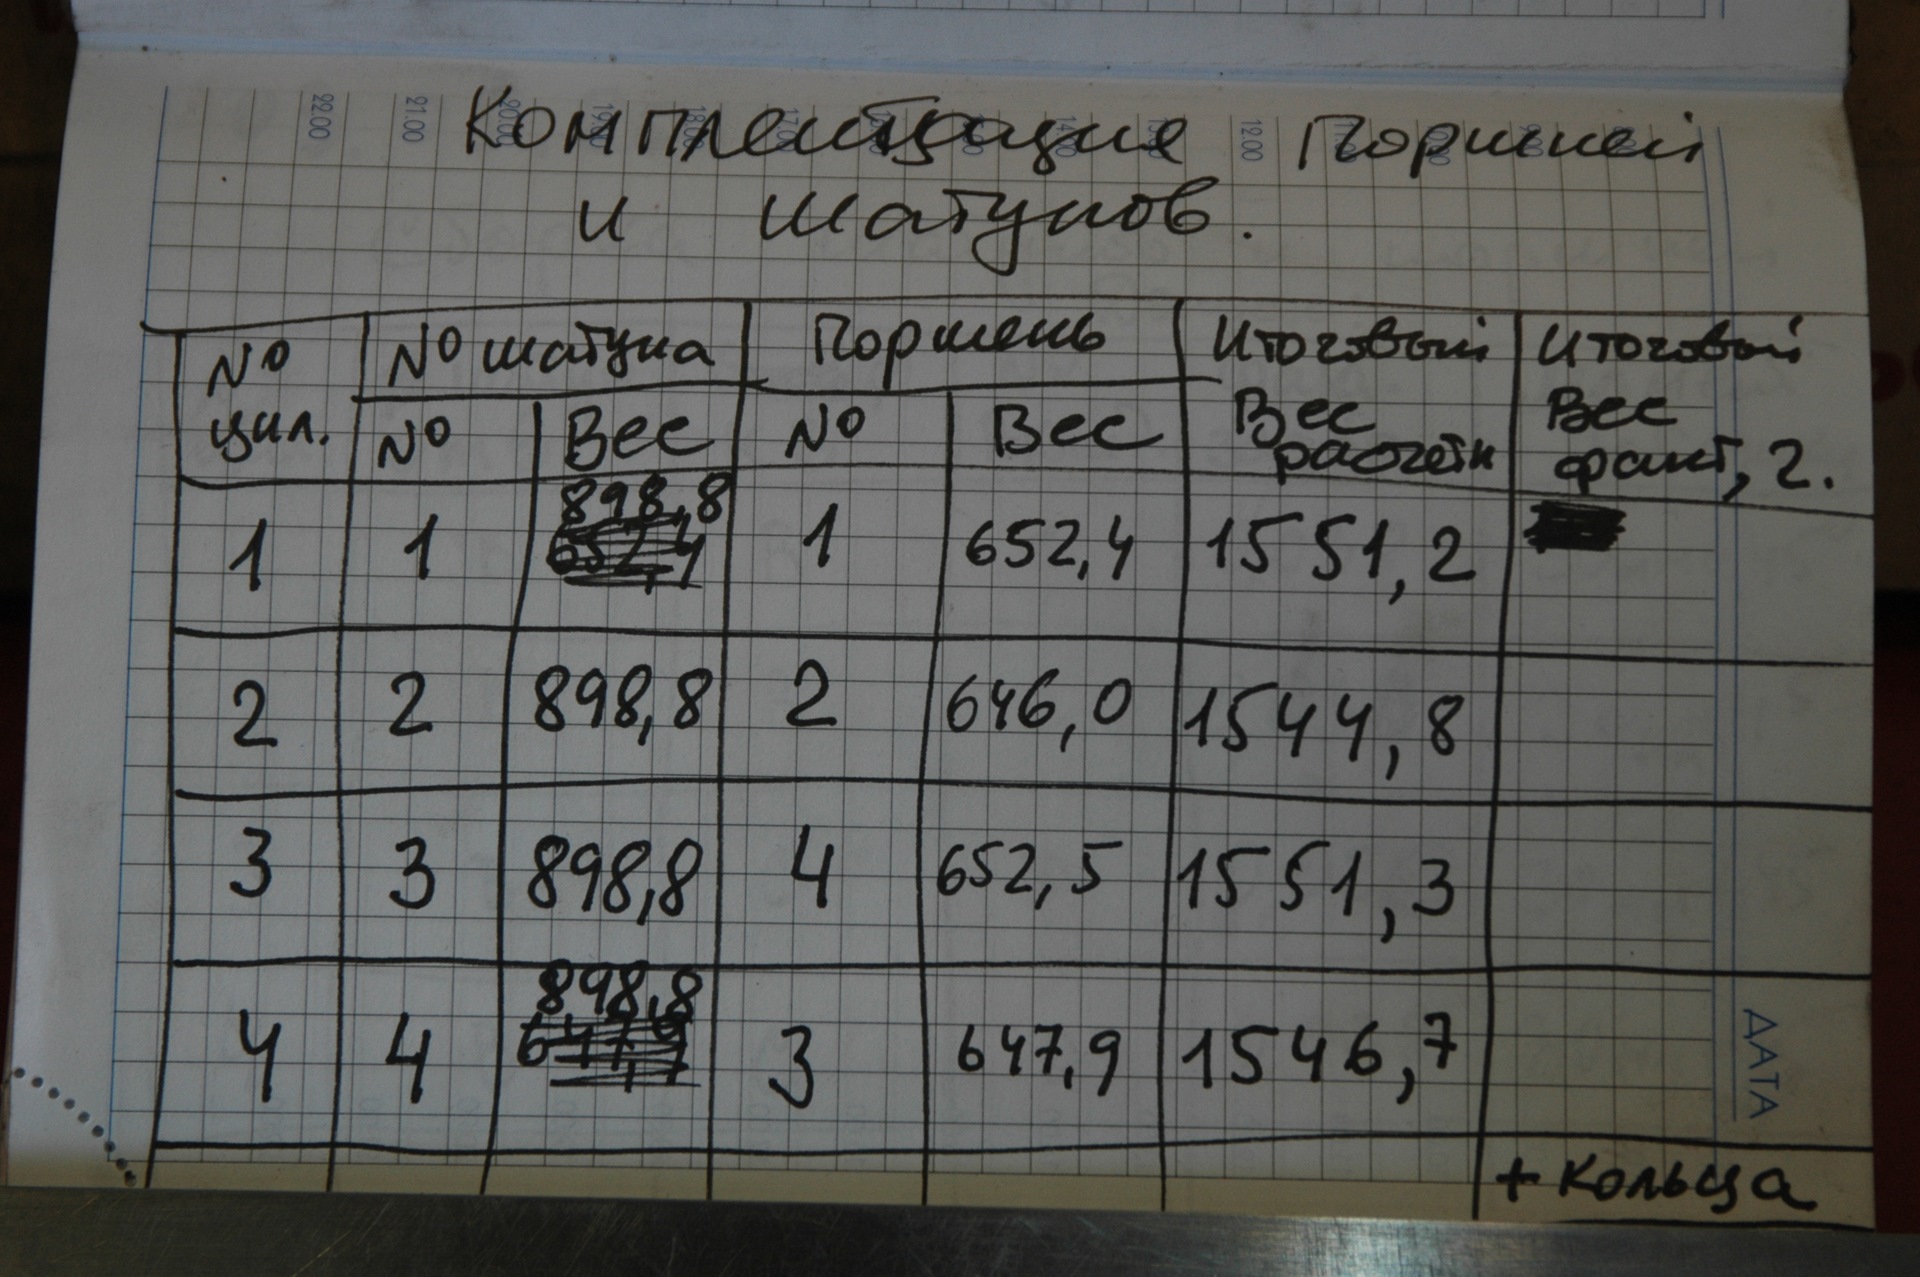 22.00 21.00 20.00 19.00 18.00 17.00 14.00 12.00
Комплектация Поршней
и шатунов.
№ цил. № шатуна Поршень Итоговый Вес расчетн Итоговый Вес факт, г.
№ Вес № Вес
898,8
1 1 652,4 1 652,4 1551,2
2 2 898,8 2 646,0 1544,8
3 3 898,8 4 652,5 1551,3
898,8
4 4 647,9 3 647,9 1546,7
+ кольца
ДАТА